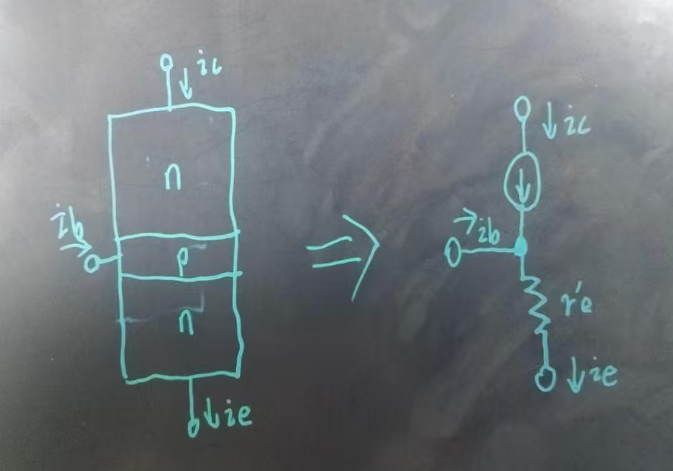 ic
n
ib
p
n
ie
ic
ib
r'e
ie